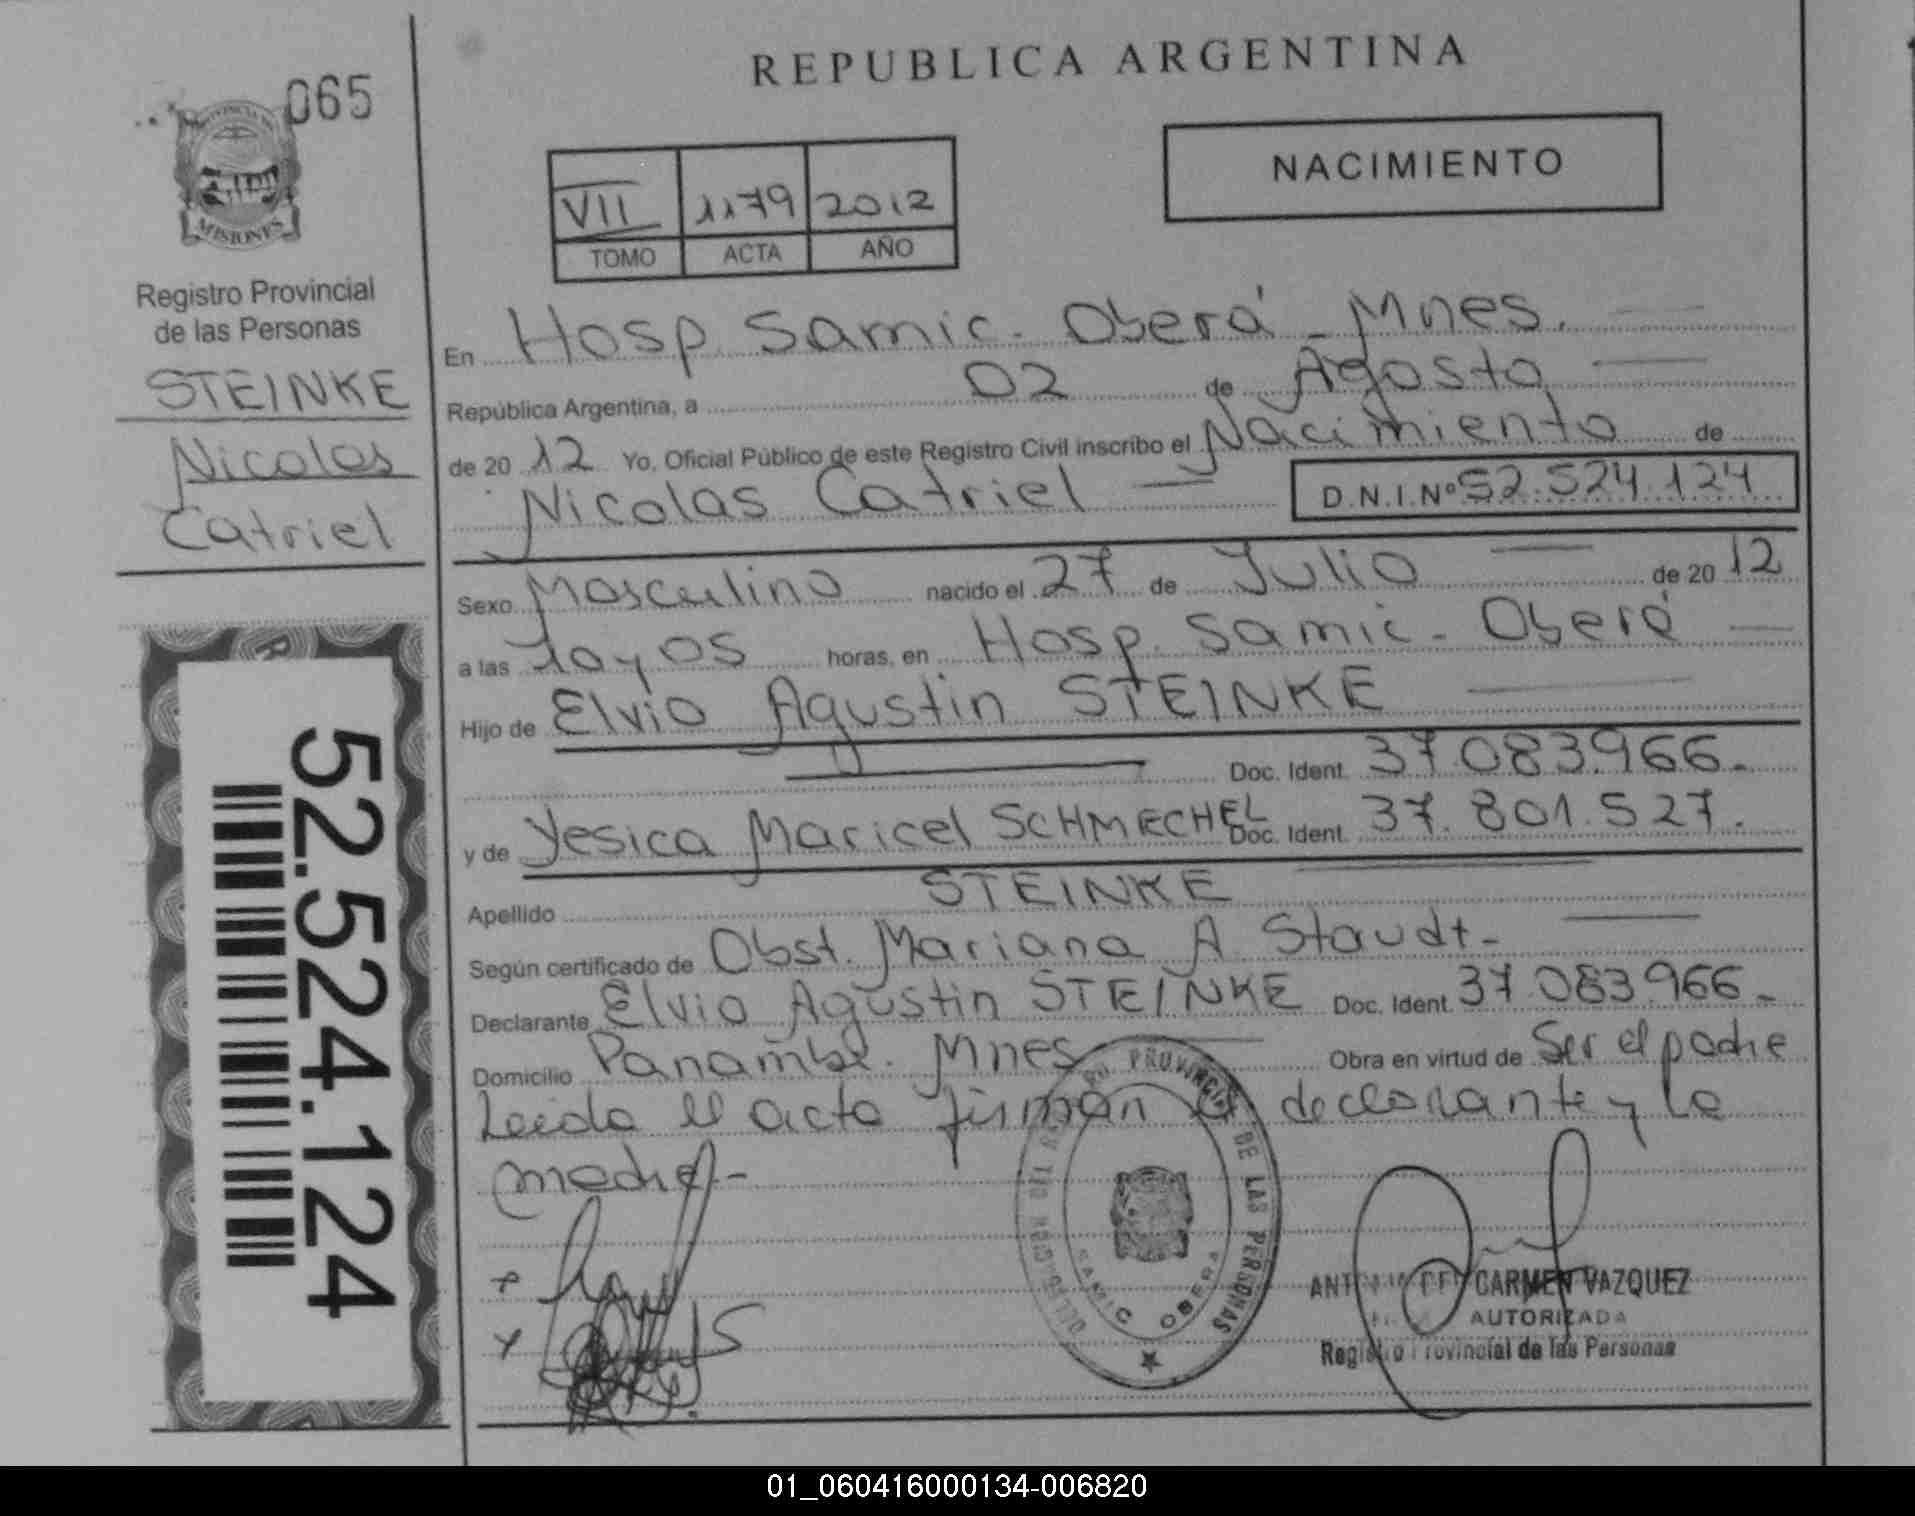 REPUBLICA ARGENTINA
065
PROVINCIA DE
MISIONES
Registro Provincial
de las Personas
STEINKE
Nicolas
Catriel
52.524.124
VII 1179 2012
TOMO ACTA AÑO
NACIMIENTO
En Hosp. Samic. Oberá - Mnes.
República Argentina, a 02 de Agosto
de 2012 Yo, Oficial Público de este Registro Civil inscribo el Nacimiento de
Nicolas Catriel D.N.I.Nº 52.524.124
Sexo Masculino nacido el 27 de Julio de 2012
a las 10 y 05 horas, en Hosp. Samic. - Oberá
Hijo de Elvio Agustin STEINKE
Doc. Ident. 37.083.966.-
y de Yesica Maricel SCHMECHEL Doc. Ident. 37.801.527.
Apellido STEINKE
Según certificado de Obst. Mariana A. Staudt.-
Declarante Elvio Agustin STEINKE Doc. Ident. 37.083.966.-
Domicilio Panambí. Mnes Obra en virtud de Ser el padre
Leida el acta firman el declarante y la
madre.-
PROVINCIAL DE LAS PERSONAS
DELEGACION
SAMIC OBERA
DEL CARMEN VAZQUEZ
AUTORIZADA
Registro Provincial de las Personas
01_060416000134-006820